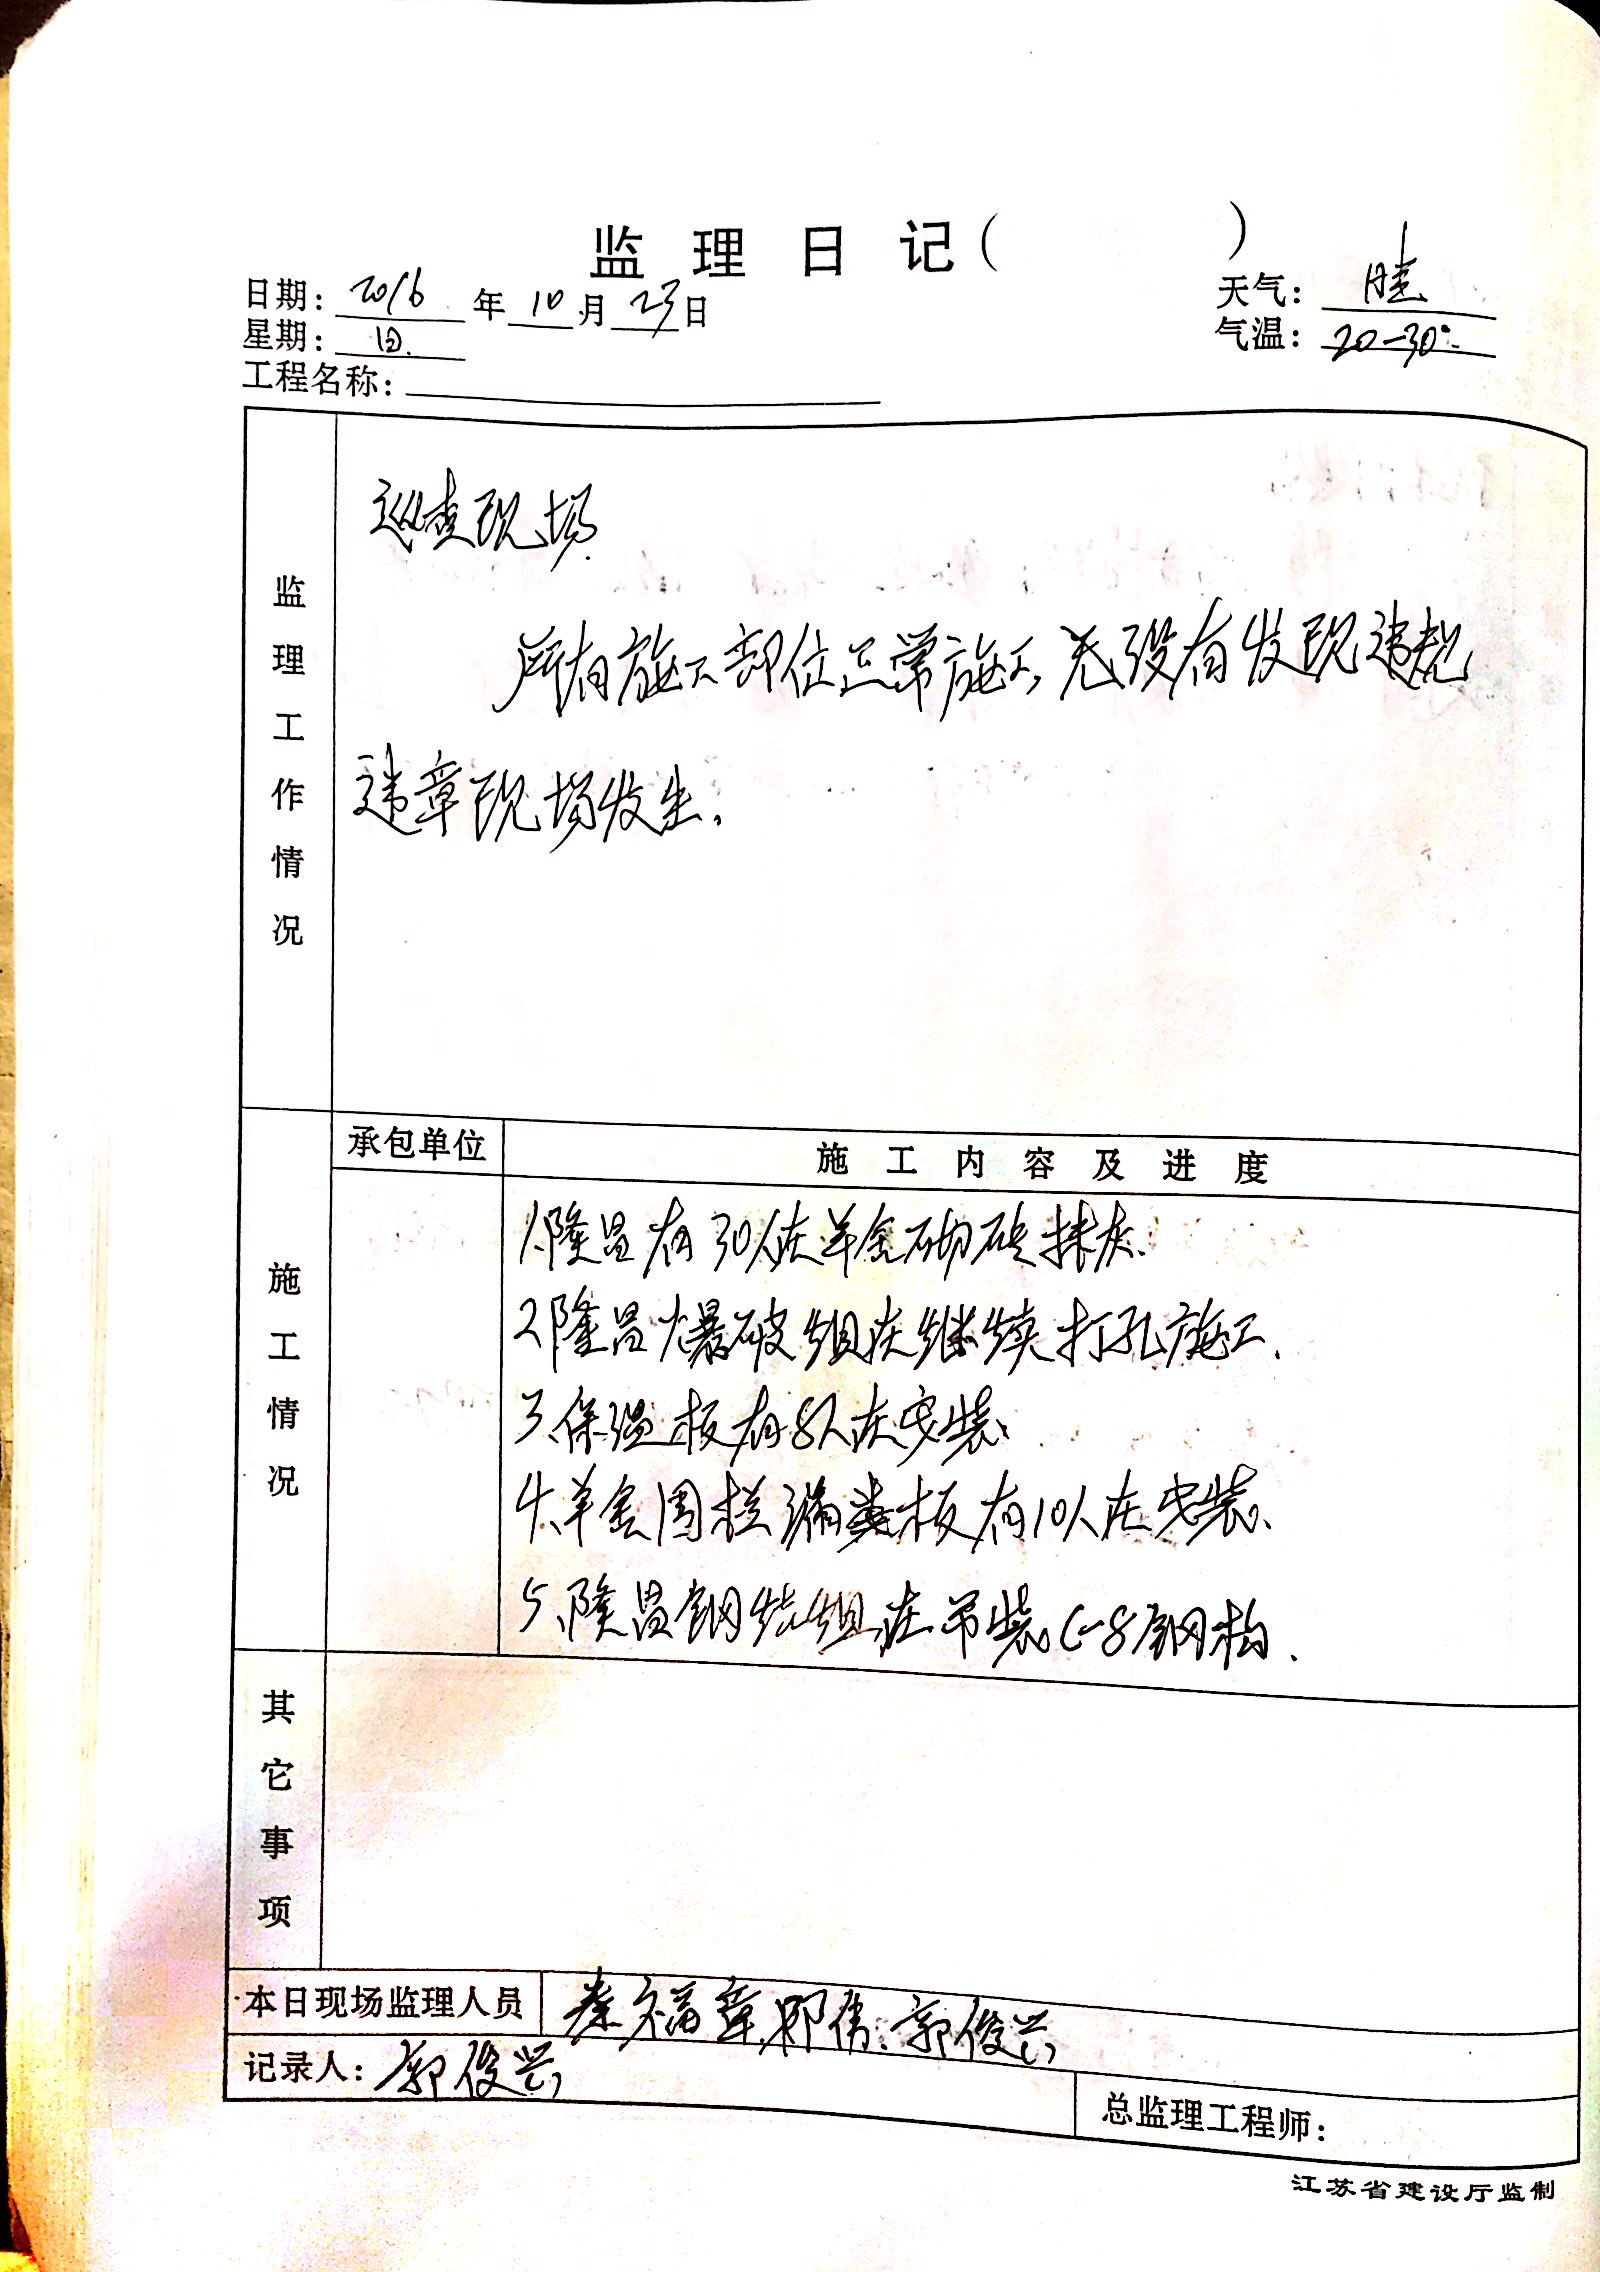 监理日记(　　　)
日期: 2016 年 10 月 23 日
天气: 晴
星期: 日.
气温: 20-30°
工程名称:
监理工作情况
巡查现场.
所有施工部位正常施工,无没有发现违规
违章现场发生。
承包单位
施工内容及进度
施工情况
1.隆昌有30人在羊舍砌砖抹灰.
2.隆昌爆破组在继续打孔施工.
3.保温板有8人在安装.
4.羊舍围栏漏粪板有10人在安装.
5.隆昌钢结组在吊装6-8钢构.
其它事项
本日现场监理人员 秦福章.邓伟.郭俊兴
记录人: 郭俊兴
总监理工程师:
江苏省建设厅监制